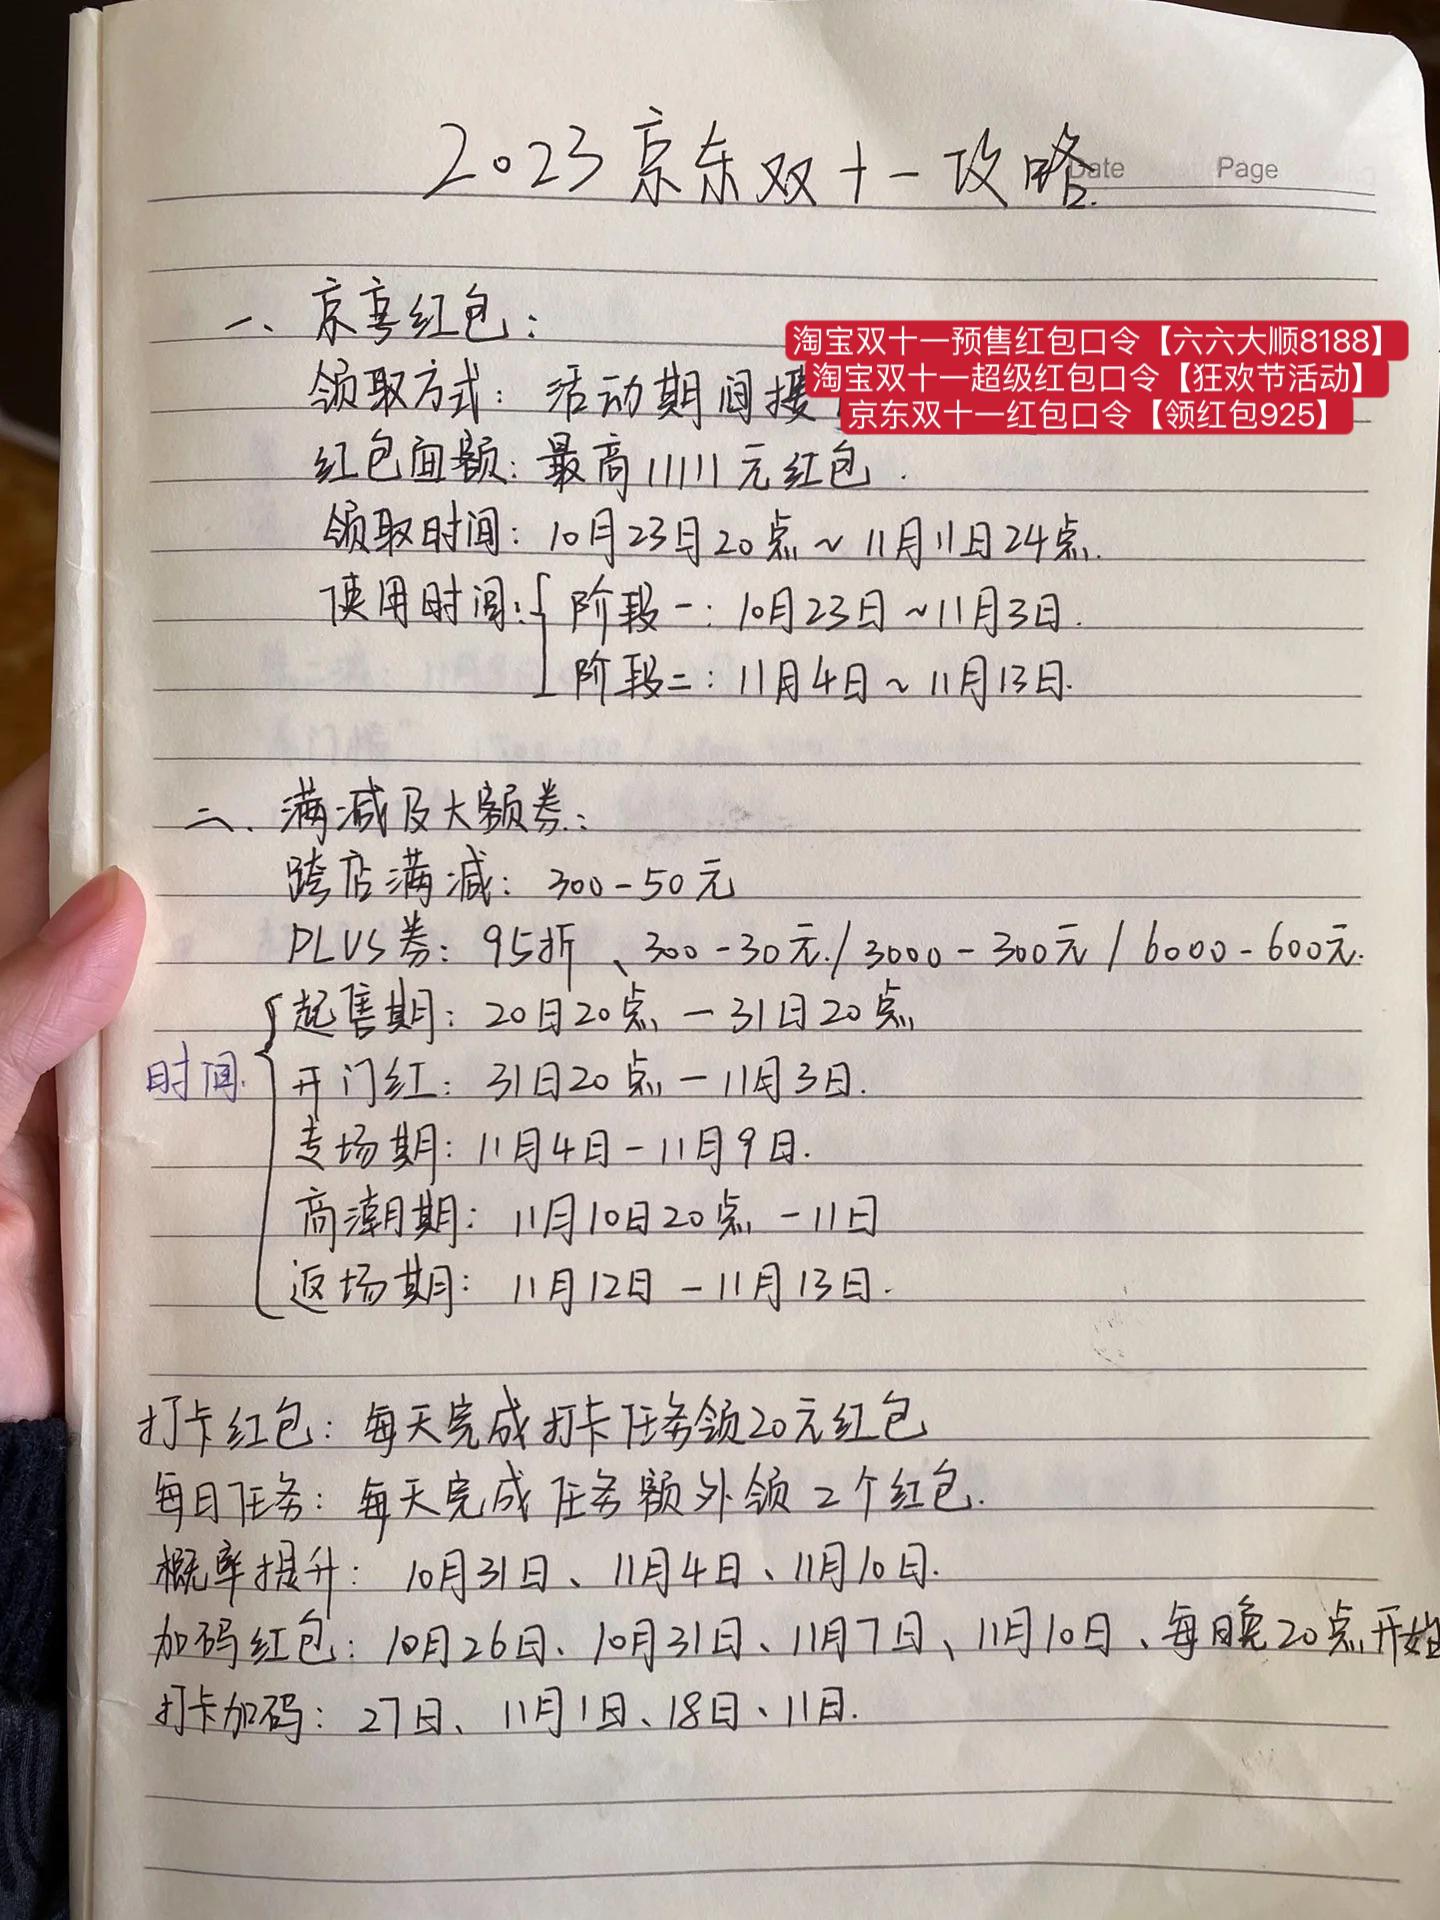 2023京东双十一攻略.
Date Page
一、京享红包:
淘宝双十一预售红包口令【六六大顺8188】
领取方式: 活动期间搜
淘宝双十一超级红包口令【狂欢节活动】
京东双十一红包口令【领红包925】
红包面额: 最高11111元红包.
领取时间: 10月23日20点~11月11日24点.
使用时间: 阶段一: 10月23日~11月3日.
阶段二: 11月4日~11月13日.
二、满减及大额券:
跨店满减: 300-50元
PLUS券: 95折、300-30元/3000-300元/6000-600元.
起售期: 20日20点-31日20点
时间. 开门红: 31日20点-11月3日.
专场期: 11月4日-11月9日.
高潮期: 11月10日20点-11日
返场期: 11月12日-11月13日.
打卡红包: 每天完成打卡任务领20元红包
每日任务: 每天完成任务额外领2个红包.
概率提升: 10月31日、11月4日、11月10日.
加码红包: 10月26日、10月31日、11月7日、11月10日、每日晚20点开始
打卡加码: 27日、11月1日、18日、11日.